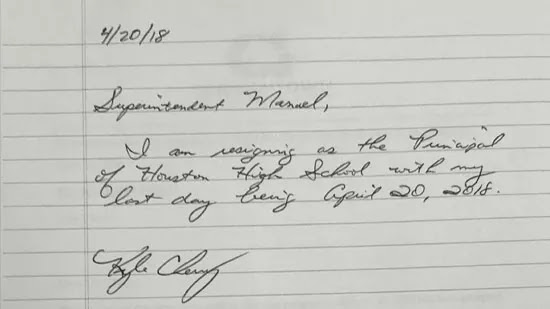 4/20/18
Superintendent Manuel,
I am resigning as the Principal
of Houston High School with my
last day being April 20, 2018.
Kyle Cherry